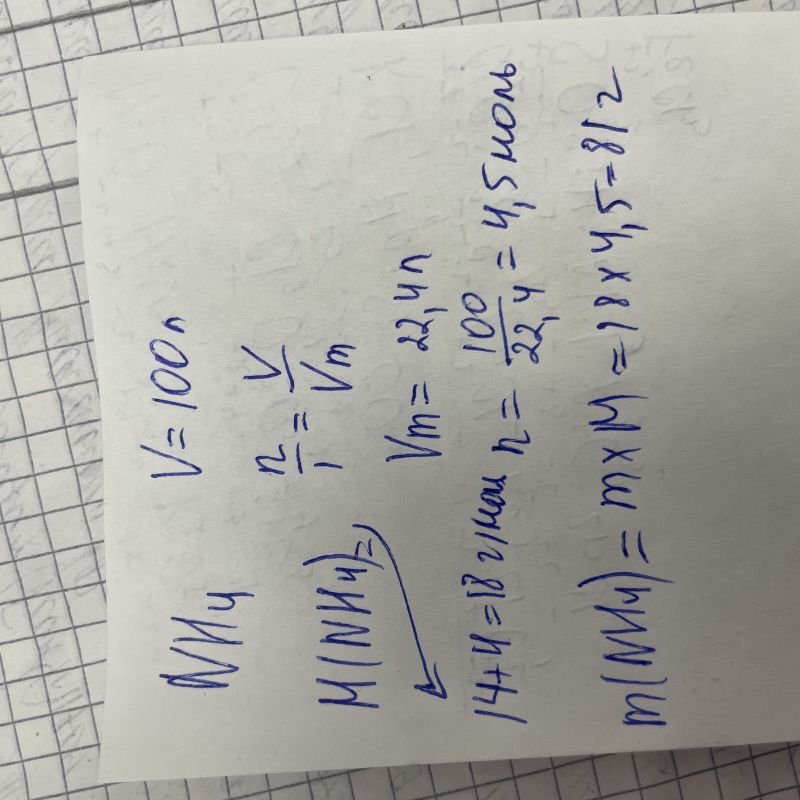 NH4 V = 100л
n/1 = V/Vm
M(NH4) = Vm = 22,4л
14+4=18 г/мол n = 100/22,4 = 4,5 моль
m(NH4) = m x M = 18 x 4,5 = 81г